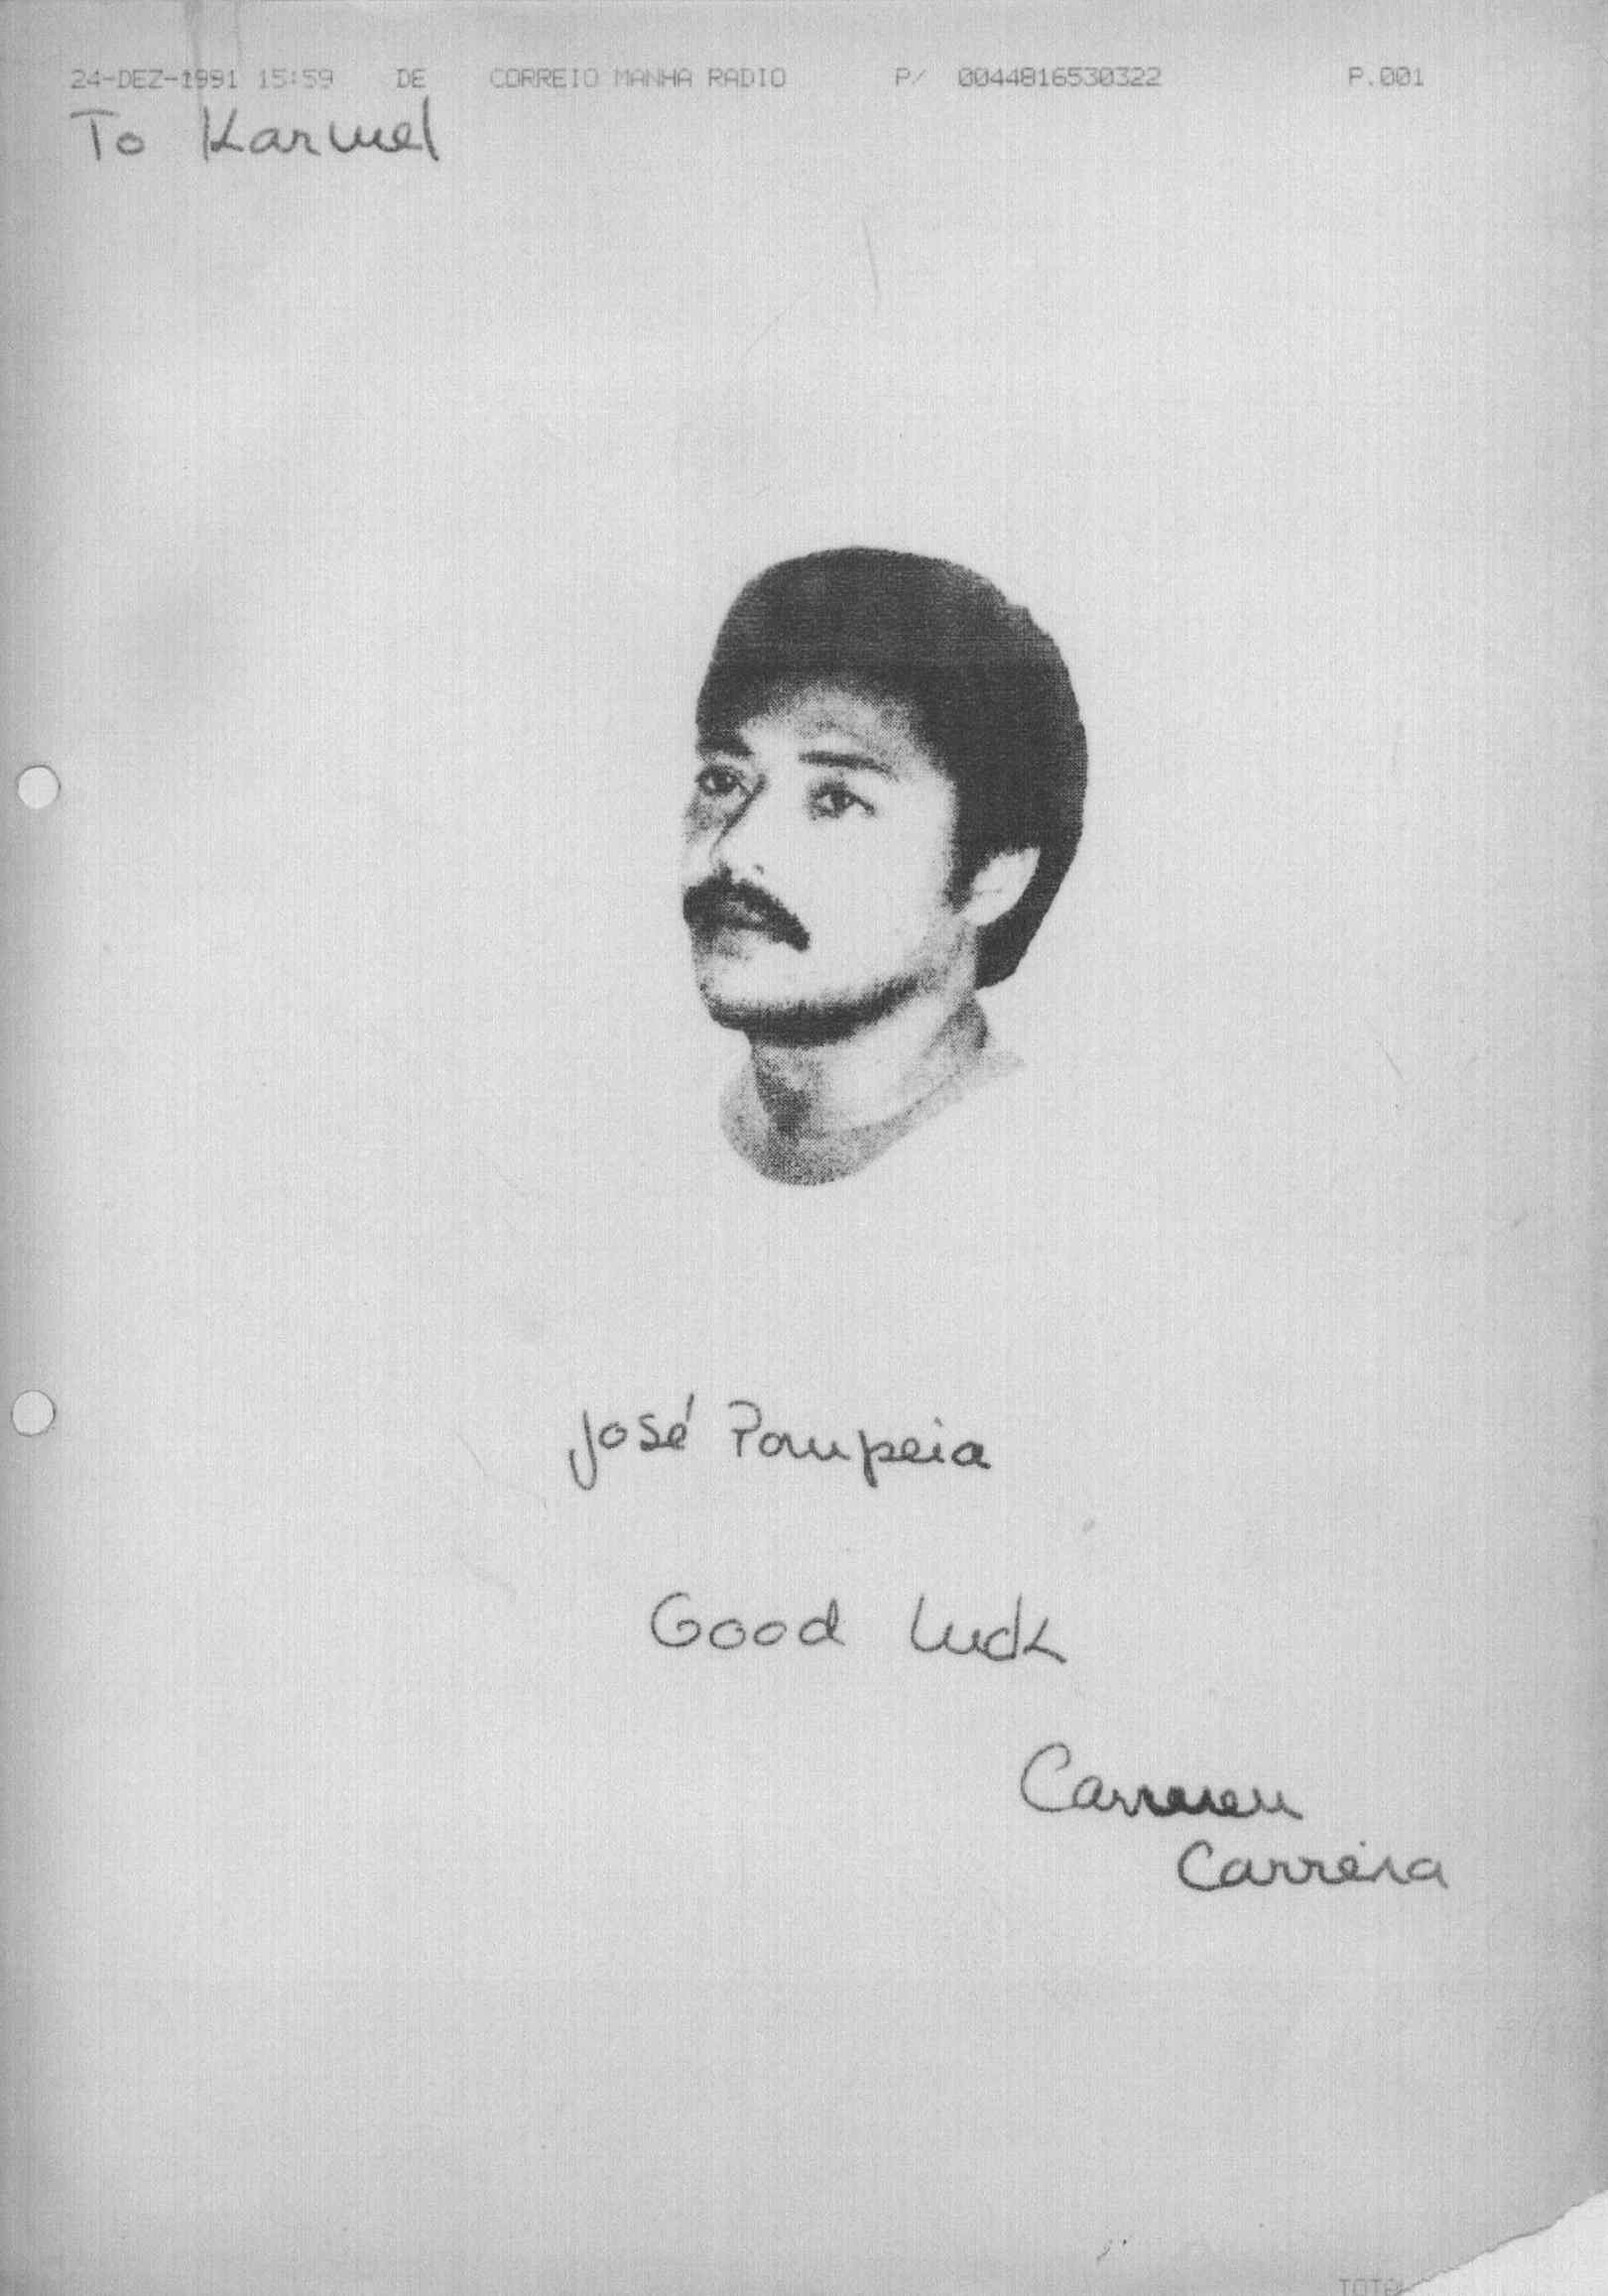 24-DEZ-1991 15:59 DE CORREIO MANHA RADIO P/ 0044816530322 P.001
To Karmel
José Pompeia
Good luck
Carmen
Carreira